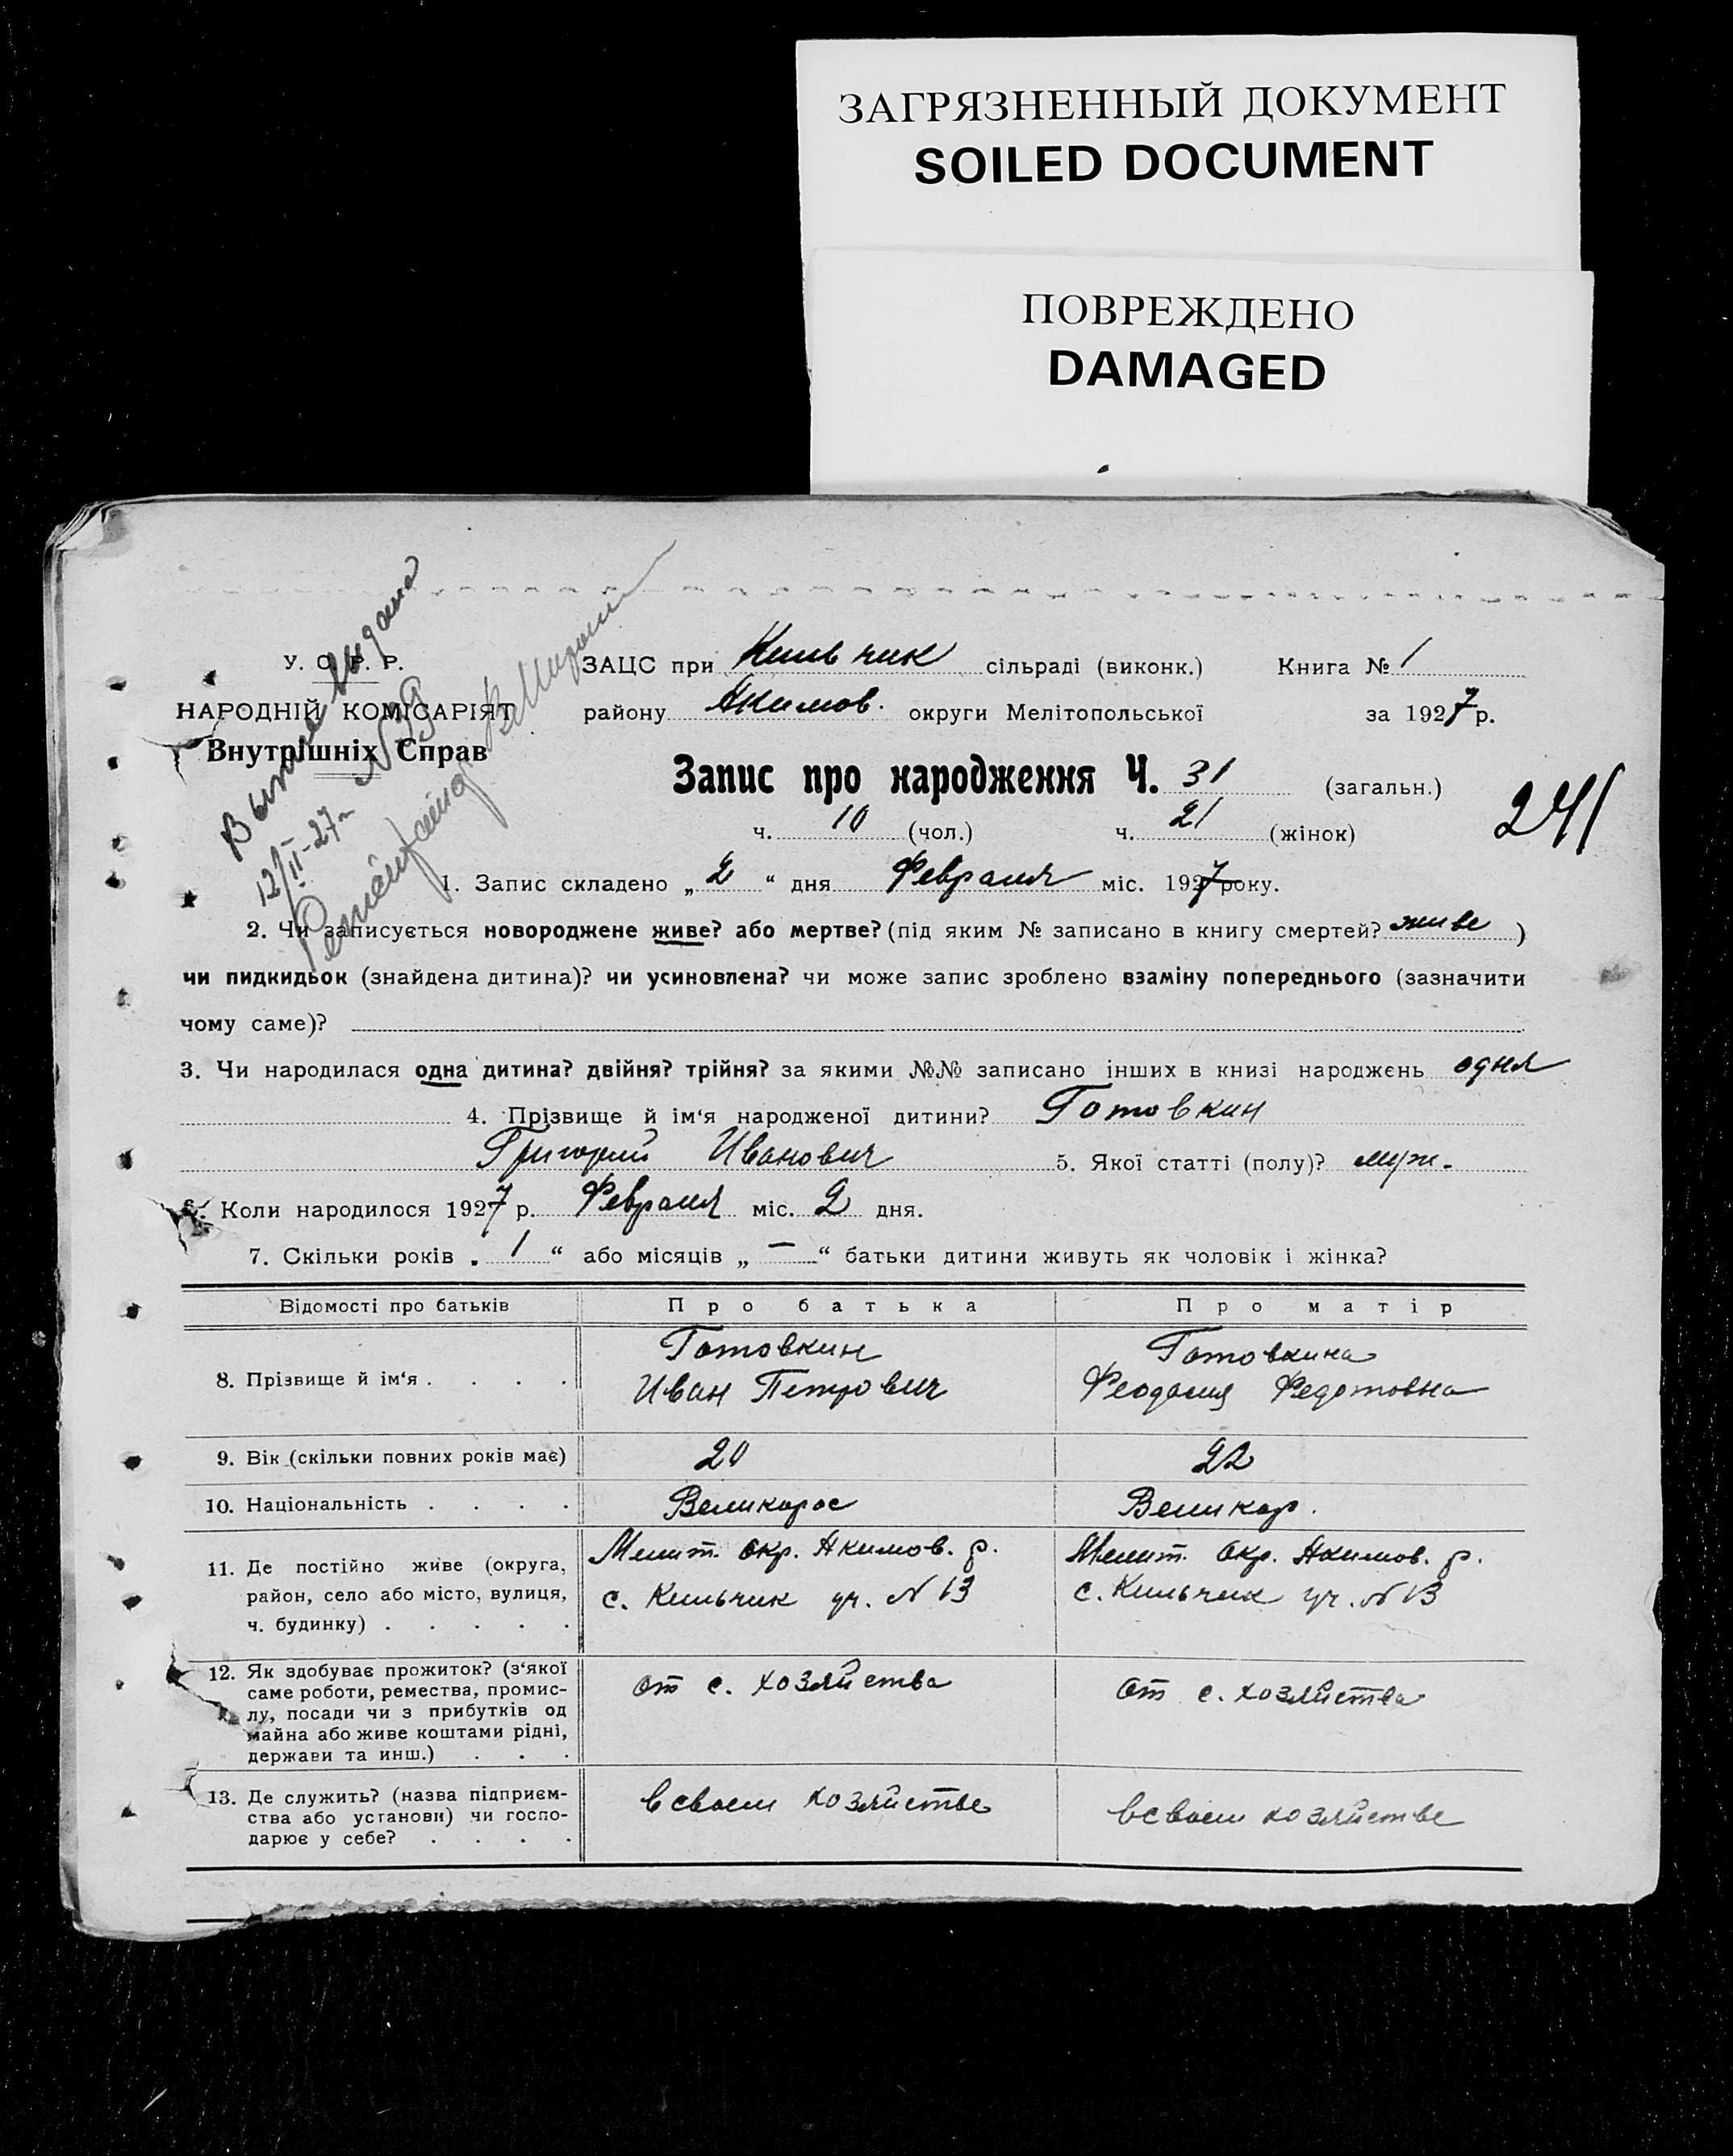 ЗАГРЯЗНЕННЫЙ ДОКУМЕНТ
SOILED DOCUMENT
ПОВРЕЖДЕНО
DAMAGED
У. С. Р. Р.
НАРОДНІЙ КОМІСАРІЯТ
Внутрішніх Справ
12/II-27
ЗАЦС при Кильчик сільраді (виконк.) Книга № 1
району Акимов. округи Мелітопольської за 1927 р.
Запис про народження Ч. 31 (загальн.)
241
ч. 10 (чол.) ч. 21 (жінок)
1. Запис складено „ 2 “ дня Февраля міс. 1927 року.
2. Чи записується новороджене живе? або мертве? (під яким № записано в книгу смертей? живе )
чи пидкидьок (знайдена дитина)? чи усиновлена? чи може запис зроблено взаміну попереднього (зазначити
чому саме)?
3. Чи народилася одна дитина? двійня? трійня? за якими №№ записано інших в книзі народжень одна
4. Прізвище й ім‘я народженої дитини? Готовкин
Григорий Иванович 5. Якої статті (полу)? муж.
6. Коли народилося 1927 р. Февраля міс. 2 дня.
7. Скільки років „ 1 “ або місяців „ — “ батьки дитини живуть як чоловік і жінка?
Відомості про батьків Про батька Про матір
8. Прізвище й ім‘я . . . .
Готовкин
Иван Петрович
Готовкина
Феодосия Федотовна
9. Вік (скільки повних років має) 20 22
10. Національність . . . . Великорос Великор.
11. Де постійно живе (округа,
район, село або місто, вулиця,
ч. будинку) . . . . .
Мелит. окр. Акимов. р.
с. Кильчик уч. № 13
Мелит. окр. Акимов. р.
с. Кильчик уч. № 13
12. Як здобуває прожиток? (з‘якої
саме роботи, ремества, промис-
лу, посади чи з прибутків од
майна або живе коштами рідні,
держави та инш.) . . .
от с. хозяйства
от с. хозяйства
13. Де служить? (назва підприєм-
ства або установи) чи госпо-
дарює у себе? . . . .
в своем хозяйстве
в своем хозяйстве